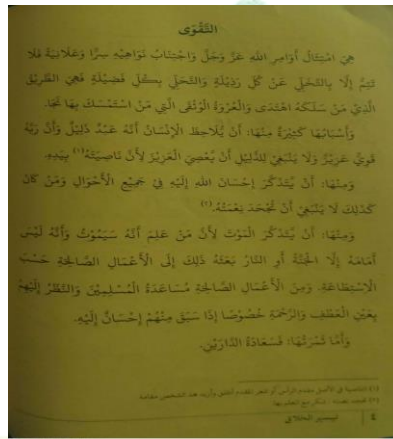 التَّقْوَى
هِيَ امْتِثَالُ أَوَامِرِ اللهِ عَزَّ وَجَلَّ وَاجْتِنَابُ نَوَاهِيْهِ سِرًّا وَعَلَانِيَةً فَلَا
تَتِمُّ إِلَّا بِالتَّخَلِّي عَنْ كُلِّ رَذِيْلَةٍ وَالتَّحَلِّي بِكُلِّ فَضِيْلَةٍ فَهِيَ الطَّرِيْقُ
الَّذِيْ مَنْ سَلَكَهُ اهْتَدَى وَالْعُرْوَةُ الْوُثْقَى الَّتِي مَنْ اسْتَمْسَكَ بِهَا نَجَا.
وَأَسْبَابُهَا كَثِيْرَةٌ مِنْهَا: أَنْ يُلَاحِظَ الْإِنْسَانُ أَنَّهُ عَبْدٌ ذَلِيْلٌ وَأَنَّ رَبَّهُ
قَوِيٌّ عَزِيْزٌ وَلَا يَنْبَغِيْ لِلذَّلِيْلِ أَنْ يُعْصِيَ الْعَزِيْزَ لِأَنَّ نَاصِيَتَهُ(١) بِيَدِهِ.
وَمِنْهَا: أَنْ يَتَذَكَّرَ إِحْسَانَ اللهِ إِلَيْهِ فِيْ جَمِيْعِ الْأَحْوَالِ وَمَنْ كَانَ
كَذَلِكَ لَا يَنْبَغِيْ أَنْ تُجْحَدَ نِعْمَتُهُ.(٢)
وَمِنْهَا: أَنْ يَتَذَكَّرَ الْمَوْتَ لِأَنَّ مَنْ عَلِمَ أَنَّهُ سَيَمُوْتُ وَأَنَّهُ لَيْسَ
أَمَامَهُ إِلَّا الْجَنَّةُ أَوِ النَّارُ بَعَثَهُ ذَلِكَ إِلَى الْأَعْمَالِ الصَّالِحَةِ حَسْبَ
الْاِسْتِطَاعَةِ. وَمِنَ الْأَعْمَالِ الصَّالِحَةِ مُسَاعَدَةُ الْمُسْلِمِيْنَ وَالنَّظَرُ إِلَيْهِمْ
بِعَيْنِ الْعَطْفِ وَالرَّحْمَةِ خُصُوْصًا إِذَا سَبَقَ مِنْهُمْ إِحْسَانٌ إِلَيْهِ.
وَأَمَّا ثَمْرَتُهَا: فَسَعَادَةُ الدَّارَيْنِ.
(١) الناصية في الأصل مقدم الرأس أو شعر المقدم أطلق وأريد هنا الشخص
٤ تيسير الخلاق